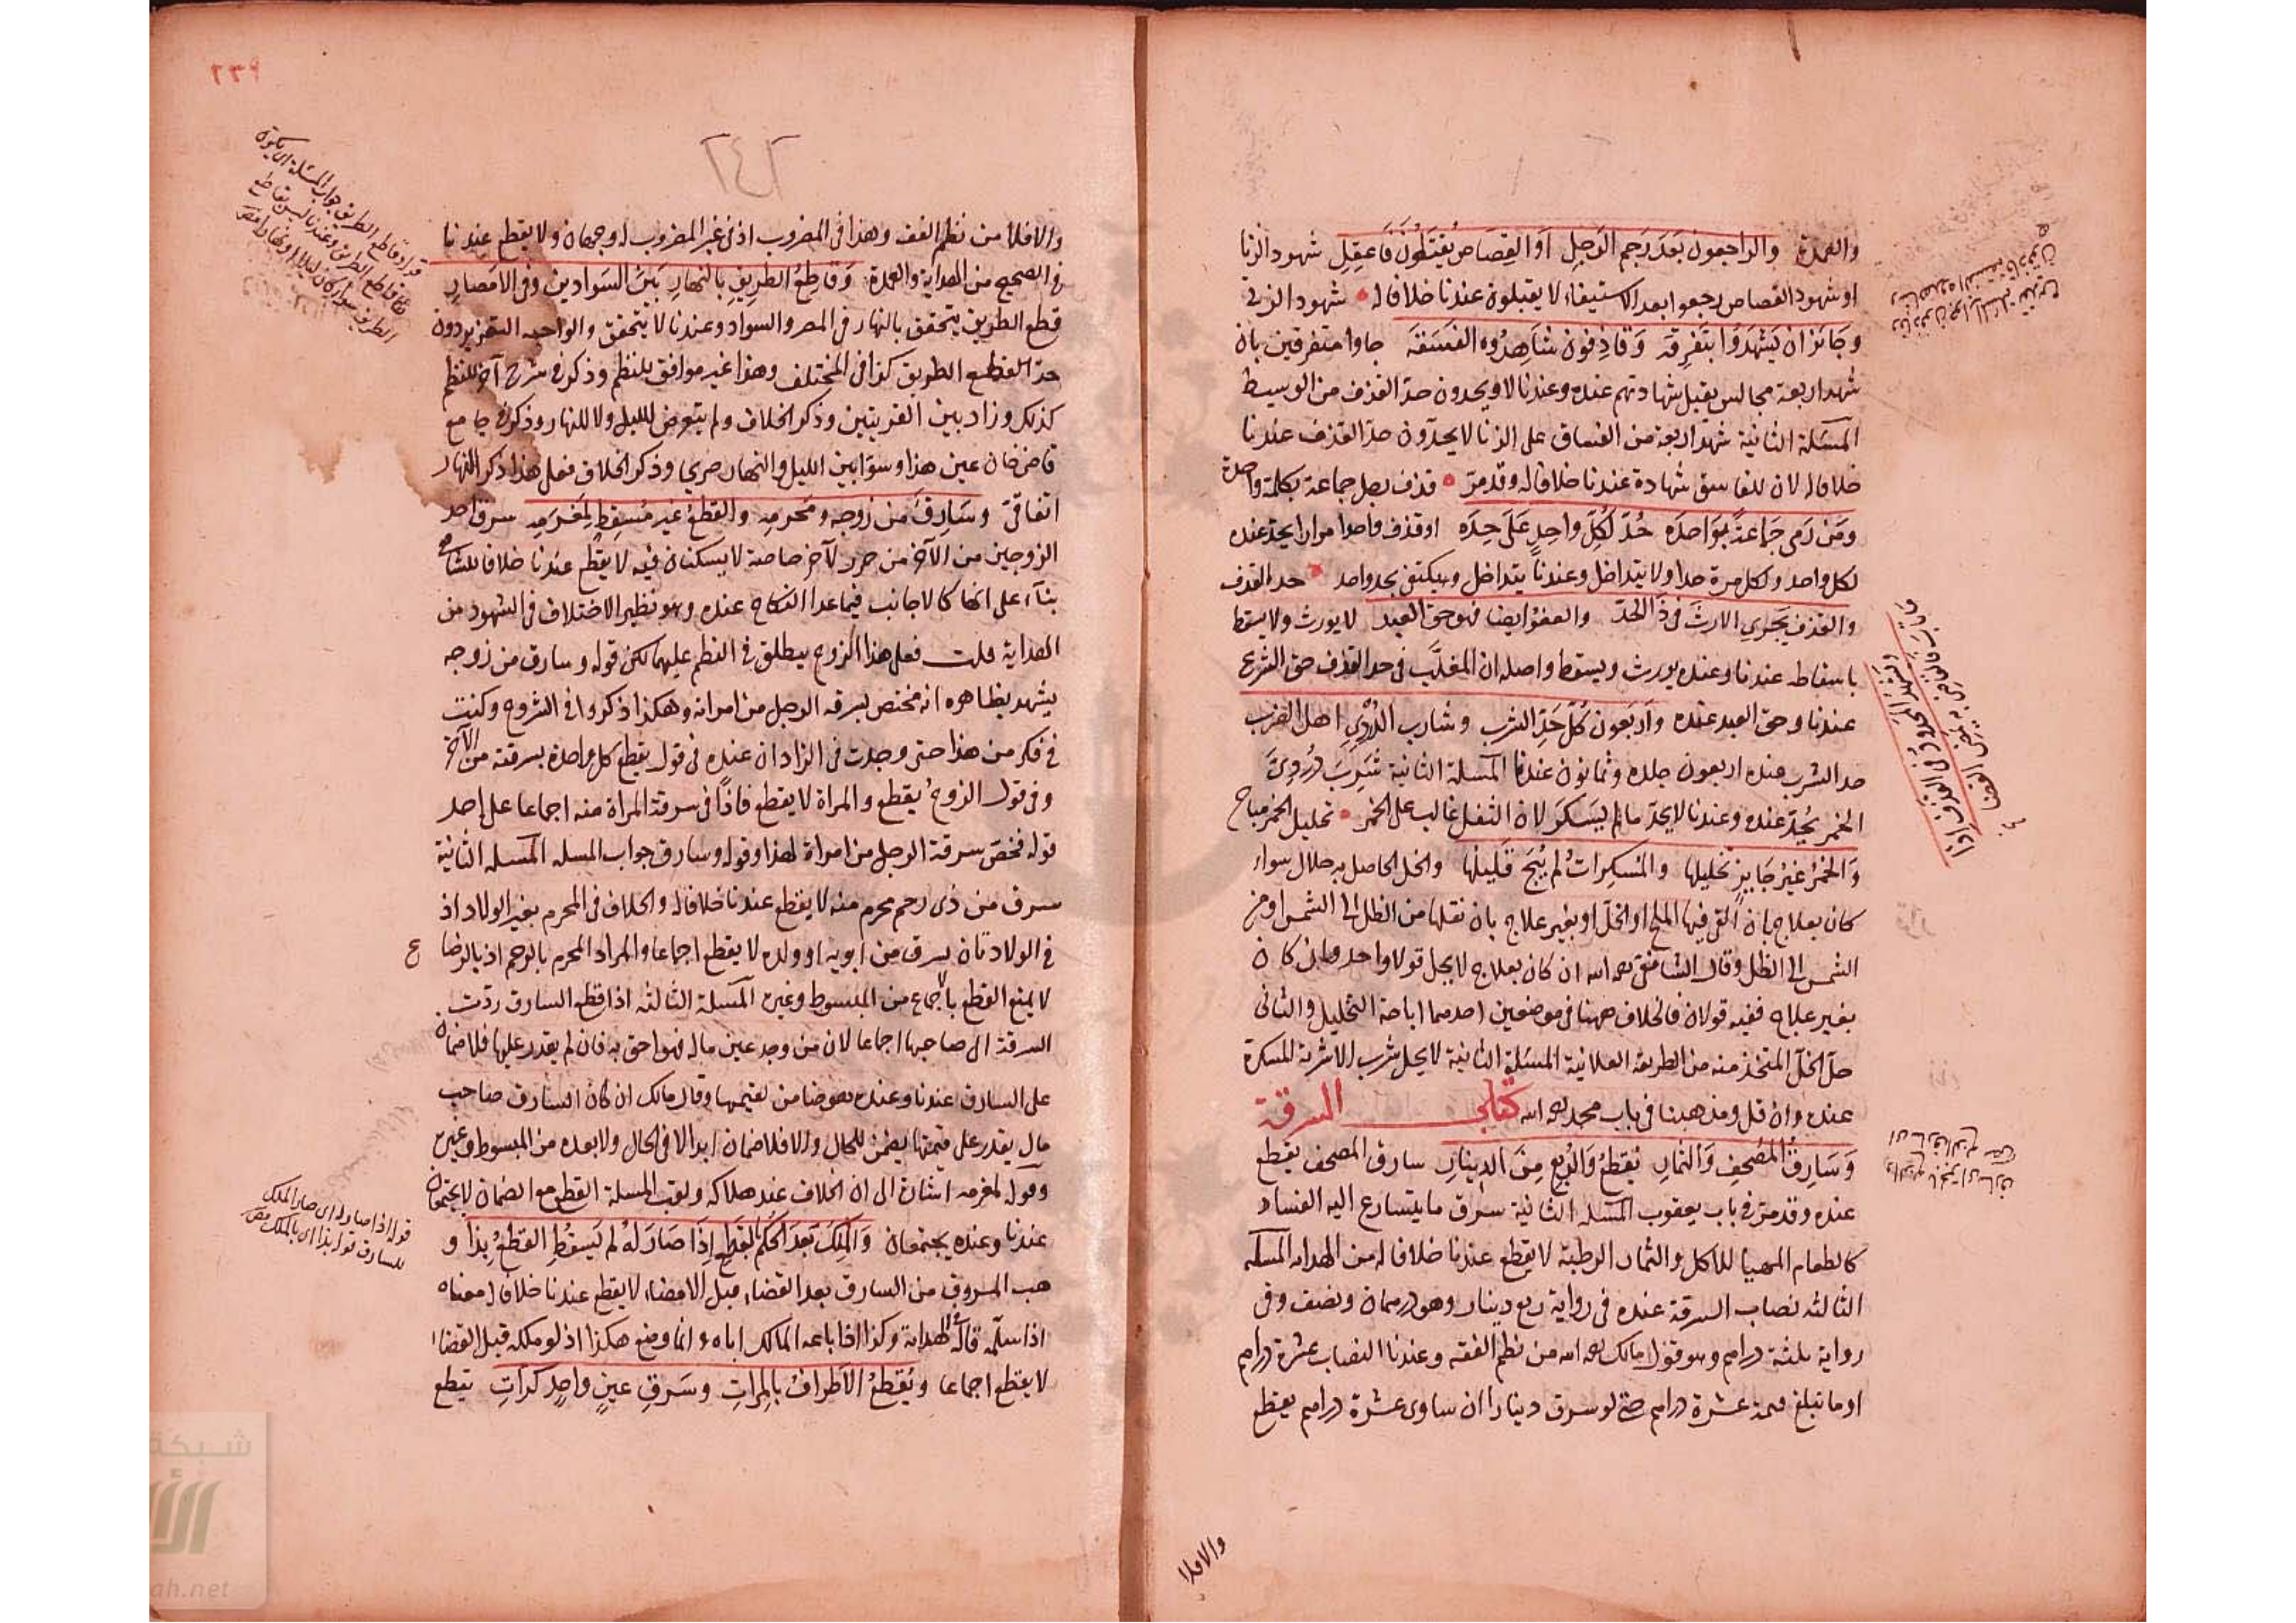 والعمدة والراجعون بعد رجم الرجل او القصاص يقتلون فاعقل شهود الزنا
او شهود القصاص رجعوا بعد الاستيفاء لا يقتلون عندنا خلافا له شهود الزنى
وجائز ان يشهدوا بتفرقه وقاذفون شاهدوه الفسقه جاوا متفرقين بان
شهد اربعة مجالس يقبل شهادتهم عنده وعندنا لا ويحدون حد القذف من الوسيط
المسئلة الثانية شهد اربعة من الفساق على الزنا لا يحدون حد القذف عندنا
خلافا له لان للفاسق شهادة عندنا خلافا له وقد مر قذف رجل جماعة بكلمة واحدة
ومن رمى جماعة بواحده حد لكل واحد على حده او قذف واحدا مرارا يحد عنده
لكل واحد ولكل مرة حدا ولا يتداخل وعندنا يتداخل ويكتفى بحد واحد حد القذف
والقذف يجري الارث في ذا الحد والعفو ايضا فهو حق العبد لا يورث ولا يسقط
باسقاطه عندنا وعنده يورث ويسقط واصله ان المغلب في حد القذف حق الشرع
عندنا وحق العبد عنده واربعون كل حد الشرب وشارب الدردي اهل الضرب
حد الشرب عنده اربعون جلده وثمانون عندنا المسئلة الثانية شرب دردي
الخمر يحد عنده وعندنا لا يحد ما لم يسكر لان الثفل غالب على الخمر تخليل الخمر مباح
والخمر غير جايز تخليلها والمسكرات لم يبح قليلها والخل الحاصل به حلال سواء
كان بعلاج بان القى فيها الملح او الخل او بغير علاج بان نقلها من الظل الى الشمس او من
الشمس الى الظل وقال الشافعي رحمه الله ان كان بعلاج لا يحل قولا واحدا وان كان
بغير علاج ففيه قولان فالخلاف ههنا في موضعين احدهما اباحة التخليل والثاني
حل الخل المتخذ منه من الطريقة العلائية المسئلة الثانية لا يحل شرب الاشربة المسكرة
عنده وان قل ومذهبنا في باب محمد رحمه الله كتاب السرقة
وسارق المصحف والثمار يقطع والربع من الدينار سارق المصحف يقطع
عنده وقد مر في باب يعقوب المسئلة الثانية سرق ما يتسارع اليه الفساد
كالطعام المهيا للاكل والثمار الرطبة لا يقطع عندنا خلافا له من الهداية المسئلة
الثالثه نصاب السرقة عنده في رواية ربع دينار وهو درهمان ونصف وفي
رواية ثلثة دراهم وهو قول مالك رحمه الله من نظم الفقه وعندنا النصاب عشرة دراهم
او ما تبلغ قيمته عشرة دراهم حتى لو سرق دينارا ان ساوى عشرة دراهم يقطع
والافلا
والافلا من نظم الفقه وهذا في المضروب اذ في غير المضروب له وجهان ولا يقطع عندنا
في الصحيح من الهداية والعمدة وقاطع الطريق بالنهار بين السوادين وفي الامصار
قطع الطريق يتحقق بالنهار في المصر والسواد وعندنا لا يتحقق والواجب التعزير دون
حد القطع الطريق كذا في المختلف وهذا غير موافق بلنظم وذكر في شرح آخر للنظم
كذلك وزاد بين القريتين وذكر الخلاف ولم يتعرض لليل ولا للنهار وذكر في جامع
قاضى خان عين هذا وسوى بين الليل والنهار صريحا وذكر الخلاف فعلى هذا ذكر النهار
اتفاقي وسارق من زوجه ومحرمه والقطع غير مسقط لمغرمه سرق احد
الزوجين من الآخر من حرز لآخر خاصة لا يسكنان فيه لا يقطع عندنا خلافا للشافعي
بناء على انها كالاجانب فيما عدا النكاح عنده وهو نظير الاختلاف في الشهود من
الهداية قلت فعلى هذا الزوج يطلق في النظم عليهما لكن قوله وسارق من زوجه
يشهد بظاهره انه مختص بسرقة الرجل من امراته وهكذا ذكروا في الشروح وكنت
في فكر من هذا حتى وجدت في الزاد ان عنده في قول يقطع كل واحدة بسرقته من الآخر
وفي قول الزوج يقطع والمراة لا يقطع فاذا في سرقة المراة منه اجماعا على احد
قوله فخص سرقة الرجل من امراة لهذا وقوله وسارق جواب المسله المسله الثانية
سرق من ذى رحم محرم منه لا يقطع عندنا خلافا له والخلاف في المحرم بغير الولاد اذ
في الولاد بان سرق من ابويه او ولده لا يقطع اجماعا والمراد المحرم بالرحم اذ بالرضاع
لا يمنع القطع بالاجماع من المبسوط وغيره المسئلة الثالثه اذا قطع السارق ردت
السرقة الى صاحبها اجماعا لان من وجد عين ماله فهو احق به فان لم يقدر عليها فلا ضمان
على السارق عندنا وعنده وقال مالك ان كان السارق صاحب
مال يقدر على قيمتها يضمن للحال والا فلا ضمان ابدا لا في الحال ولا بعده من المبسوط وغيره
وقوله لمغرمه اشارة الى ان الخلاف عند هلاكه ولقب المسلة القطع مع الضمان لا يجتمعان
عندنا وعنده يجتمعان والملك بعد الحكم القطع اذا صار له لم يسقط القطع بذا و
هب المسروق من السارق بعد القضاء قبل الامضاء لا يقطع عندنا خلافا له معناه
اذا سلمه قاله في الهداية وكذا اذا باعه المالك اياه وانما وضع هكذا اذ لو ملكه قبل القضاء
لا يقطع اجماعا ويقطع الاطراف بالمرات وسرق عين واحد كرات يقطع
قوله وقاطع الطريق جواب المسئلة اى يكون
قاطع الطريق وعندنا ليس بقاطع
الطريق سواء كان ليلا او نهارا
قوله اذا صار له اى صار الملك
للسارق قوله بذا اى بالملك